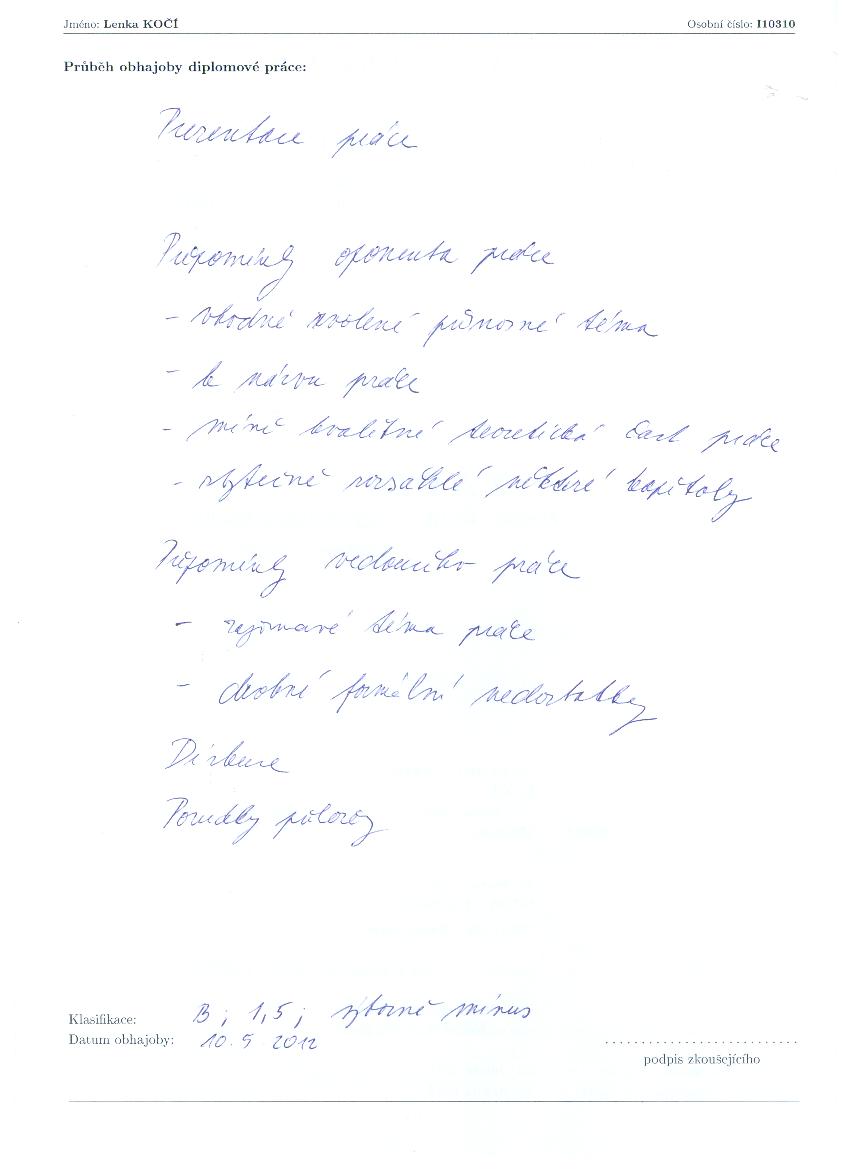 Jméno: Lenka KOČÍ Osobní číslo: I10310
Průběh obhajoby diplomové práce:
Prezentace práce
Připomínky oponenta práce
- vhodně zvolené přínosné téma
- k názvu práce
- méně kvalitně teoretická část práce
- zbytečně rozsáhlé některé kapitoly
Připomínky vedoucího práce
- zajímavé téma práce
- drobné formální nedostatky
Diskuse
Posudky přiloženy
Klasifikace: B; 1,5; výborně mínus
Datum obhajoby: 10. 5. 2012
podpis zkoušejícího